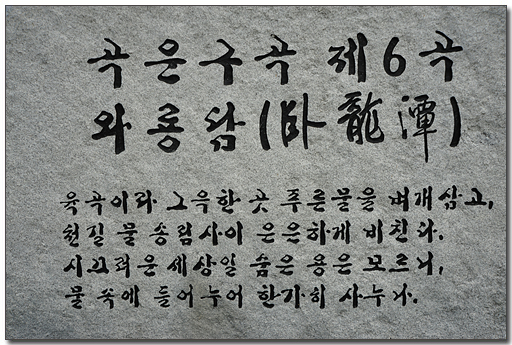 곡운구곡 제6곡
와룡담(臥龍潭)
육곡이라 그윽한 곳 푸른물을 벼개삼고,
천길 물 송림사이 은은하게 비친다.
시끄러운 세상일 숨은 용은 모르니,
물 속에 들어누어 한가히 사누나.